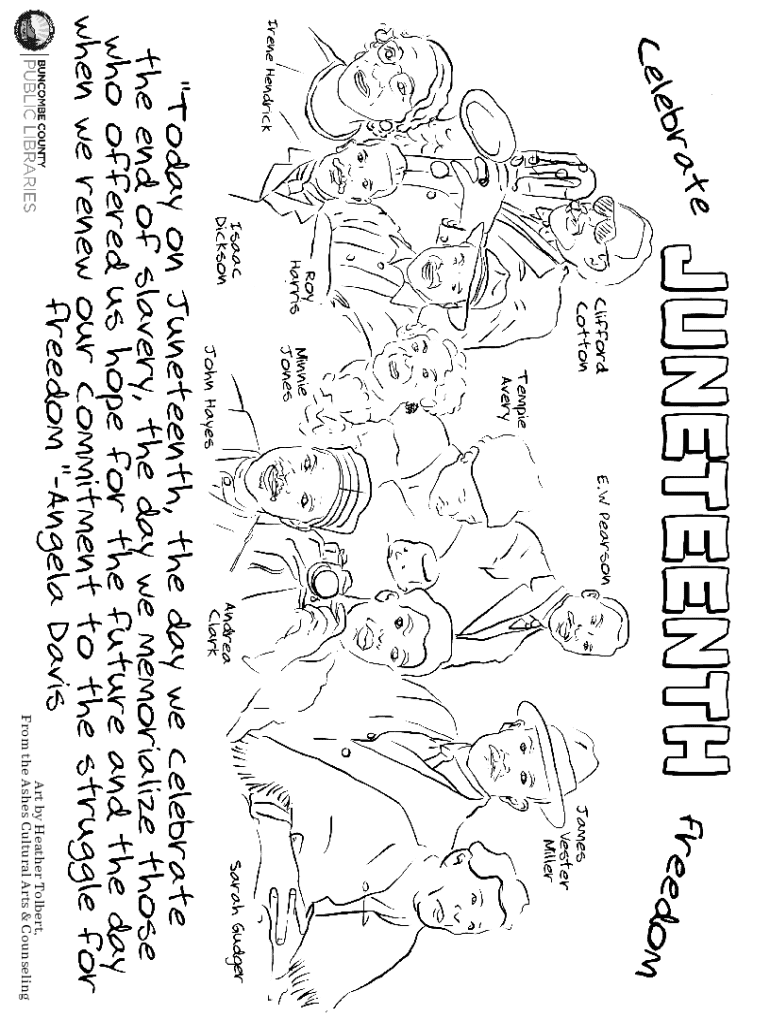 Celebrate JUNETEENTH freedom
Clifford
Cotton
Tempie
Avery
E.W Pearson
James
Vester
Miller
Irene Hendrick
Isaac
Dickson
Roy
Harris
Minnie
Jones
John Hayes
Andrea
Clark
Sarah Gudger
"Today on Juneteenth, the day we celebrate
the end of slavery, the day we memorialize those
who offered us hope for the future and the day
when we renew our commitment to the struggle for
freedom"-Angela Davis
BUNCOMBE COUNTY
PUBLIC LIBRARIES
Art by Heather Tolbert,
From the Ashes Cultural Arts & Counseling